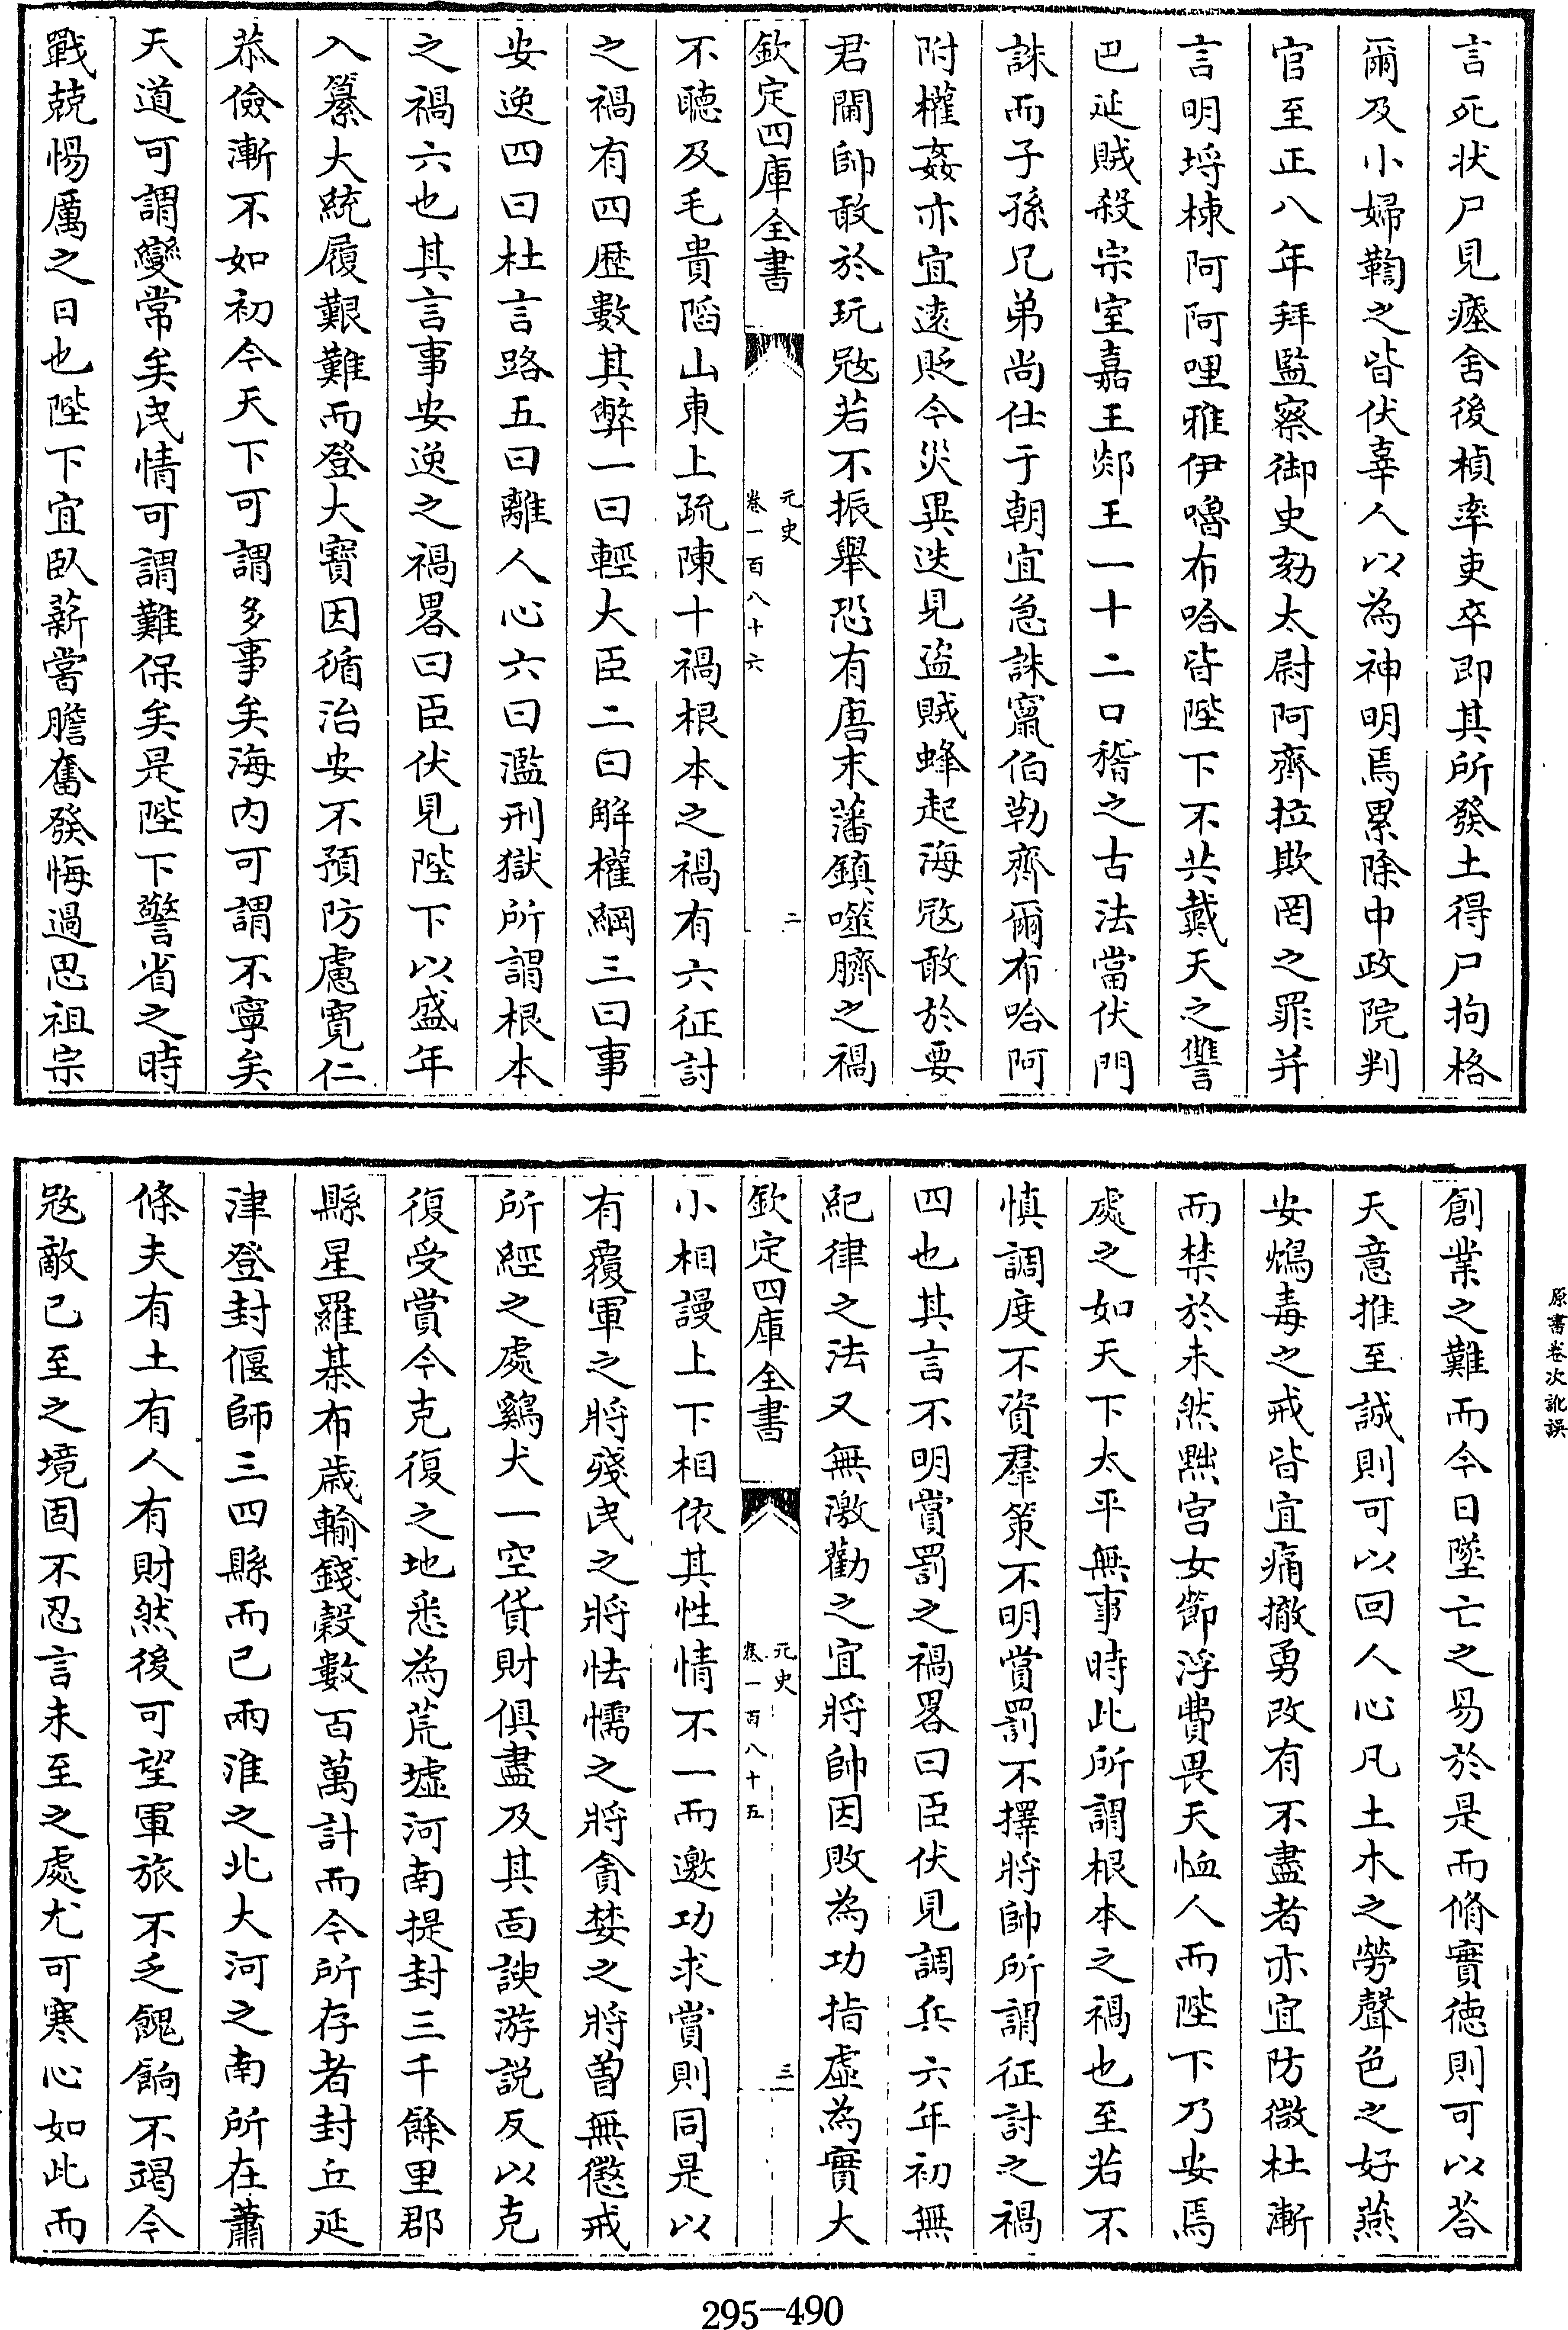 言死状尸見瘞舍後楨率吏卒即其所發土得尸拘格
爾及小婦鞫之皆伏辜人以為神明焉累除中政院判
官至正八年拜監察御史劾太尉阿齊拉欺罔之罪并
言明埒棟阿阿哩雅伊嚕布哈皆陛下不共戴天之讐
巴延賊殺宗室嘉王郯王一十二口稽之古法當伏門
誅而子孫兄弟尚仕于朝宜急誅竄伯勒齊爾布哈阿
附權姦亦宜遠貶今災異迭見盜賊蜂起海宼敢於要
君閫帥敢於玩宼若不振舉恐有唐末藩鎮噬臍之禍
欽定四庫全書
元史
卷一百八十六
二
不聽及毛貴䧟山東上疏陳十禍根本之禍有六征討
之禍有四歴數其弊一曰輕大臣二曰解權綱三曰事
安逸四曰杜言路五曰離人心六曰濫刑獄所謂根本
之禍六也其言事安逸之禍畧曰臣伏見陛下以盛年
入纂大統履艱難而登大寶因循治安不預防慮寛仁
恭儉漸不如初今天下可謂多事矣海内可謂不寧矣
天道可謂變常矣民情可謂難保矣是陛下警省之時
戰兢惕厲之日也陛下宜臥薪嘗膽奮發悔過思祖宗
原書卷次訛誤
創業之難而今日墜亡之易於是而脩實徳則可以荅
天意推至誠則可以回人心凡土木之勞聲色之好燕
安鴆毒之戒皆宜痛撤勇改有不盡者亦宜防微杜漸
而禁於未然黜宫女節浮費畏天恤人而陛下乃安焉
處之如天下太平無事時此所謂根本之禍也至若不
慎調度不資羣策不明賞罰不擇將帥所謂征討之禍
四也其言不明賞罰之禍畧曰臣伏見調兵六年初無
紀律之法又無激勸之宜將帥因敗為功指虛為實大
欽定四庫全書
元史
卷一百八十五
三
小相謾上下相依其性情不一而邀功求賞則同是以
有覆軍之將殘民之將怯懦之將貪婪之將曽無懲戒
所經之處鷄犬一空貨財俱盡及其面諛游説反以克
復受賞今克復之地悉為荒墟河南提封三千餘里郡
縣星羅棊布歳輸錢穀數百萬計而今所存者封丘延
津登封偃師三四縣而已兩淮之北大河之南所在蕭
條夫有土有人有財然後可望軍旅不乏餽餉不竭今
宼敵已至之境固不忍言未至之處尤可寒心如此而
295-490